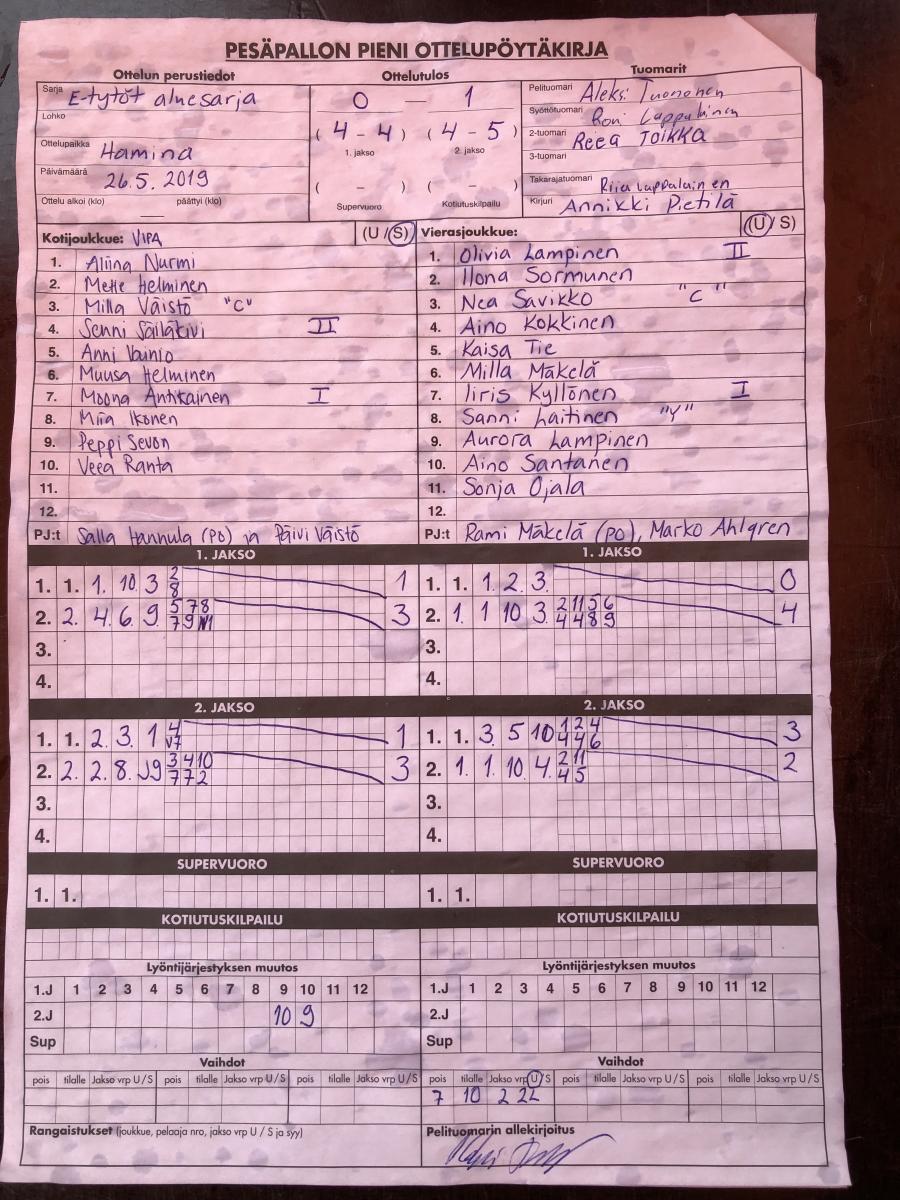 PESÄPALLON PIENI OTTELUPÖYTÄKIRJA
Ottelun perustiedot Ottelutulos Tuomarit
Sarja E-tytöt aluesarja
Lohko
Ottelupaikka Hamina
Päivämäärä 26.5. 2019
Ottelu alkoi (klo) — päättyi (klo)
0 — 1
( 4 - 4 ) ( 4 - 5 )
1. jakso 2. jakso
( - ) ( - )
Supervuoro Kotiutuskilpailu
Pelituomari Aleksi Tuononen
Syöttötuomari Roni Lappalainen
2-tuomari Reea Toikka
3-tuomari
Takarajatuomari Riia Lappalainen
Kirjuri Annikki Pietilä
Kotijoukkue: VIPA (U / S)
1. Aliina Nurmi
2. Mette Helminen
3. Milla Väistö "C"
4. Senni Säiläkivi II
5. Anni Vainio
6. Muusa Helminen
7. Moona Antikainen I
8. Miia Ikonen
9. Peppi Sevon
10. Veea Ranta
11.
12.
PJ:t Salla Hannula (PO) ja Päivi Väistö
Vierasjoukkue: (U / S)
1. Olivia Lampinen II
2. Ilona Sormunen
3. Nea Savikko "C"
4. Aino Kokkinen
5. Kaisa Tie
6. Milla Mäkelä
7. Iiris Kyllönen I
8. Sanni Laitinen "Y"
9. Aurora Lampinen
10. Aino Santanen
11. Sonja Ojala
12.
PJ:t Rami Mäkelä (PO), Marko Ahlgren
1. JAKSO 1. JAKSO
1. 1. 1. 10 3 2 8 1
2. 2. 4. 6. 9. 5 7 8 7 9 3
3.
4.
1. 1. 1. 2. 3. 0
2. 1. 1 10 3. 2 11 5 6 4 4 8 9 4
3.
4.
2. JAKSO 2. JAKSO
1. 1. 2. 3. 1 4 V7 1
2. 2. 2. 8. J9 3 4 10 7 7 2 3
3.
4.
1. 1. 3. 5 10 1 2 4 4 4 6 3
2. 1. 1. 10. 4. 2 11 4 5 2
3.
4.
SUPERVUORO SUPERVUORO
1. 1. 1. 1.
KOTIUTUSKILPAILU KOTIUTUSKILPAILU
Lyöntijärjestyksen muutos Lyöntijärjestyksen muutos
1.J 1 2 3 4 5 6 7 8 9 10 11 12 1.J 1 2 3 4 5 6 7 8 9 10 11 12
2.J 10 9 2.J
Sup Sup
Vaihdot Vaihdot
pois tilalle Jakso vrp U / S pois tilalle Jakso vrp U / S pois tilalle Jakso vrp U / S pois tilalle Jakso vrp U / S pois tilalle Jakso vrp U / S pois tilalle Jakso vrp U / S
7 10 2 2L
Rangaistukset (joukkue, pelaaja nro, jakso vrp U / S ja syy) Pelituomarin allekirjoitus